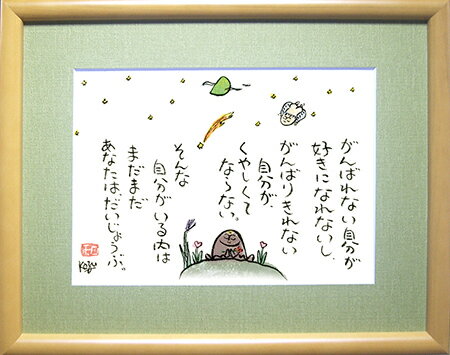 がんばれない自分が
好きになれないし、
がんばりきれない
自分が、
くやしくて
ならない。
そんな
自分がいる内は
まだまだ
あなたは、だいじょうぶ。
Koju